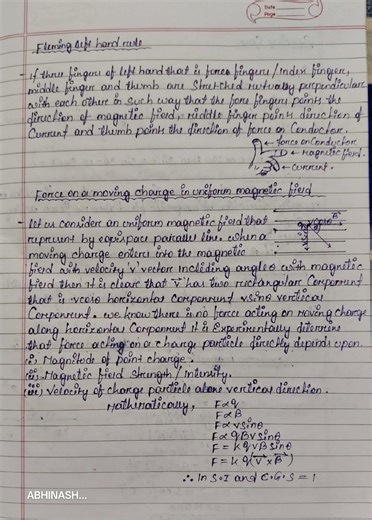 Date
Page
Fleming left hand rule
- If three fingers of left hand that is fore fingers / index finger,
middle finger and thumb are stretched mutually perpendicular
with each other in such way that the fore fingers points the
direction of magnetic field, middle finger points direction of
Current and thumb points the direction of force on Conductor.
Force on Conductor
Magnetic field.
Current.
Force on a moving charge in uniform magnetic field
- Let us consider an uniform magnetic field that
represent by equispace parallel line. when a
moving charge enters into the magnetic
field with velocity 'v' vector including angle θ with magnetic
field then it is clear that v⃗ has two rectangular Component
that is vcosθ horizontal Component vsinθ vertical
Component. we know there is no force acting on moving charge
along horizontal Component it is Experimentally determine
that force acting on a charge particle directly depends upon.
(i) Magnitude of point charge.
(ii) Magnetic field strength / Intensity.
(iii) velocity of charge particle along vertical direction.
Mathematically, F∝q
F∝B
F∝vsinθ
F∝qBvsinθ
F = k qvBsinθ
F = k q(v⃗ × B⃗)
∴ In S.I and C.G.S = 1
ABHINASH...